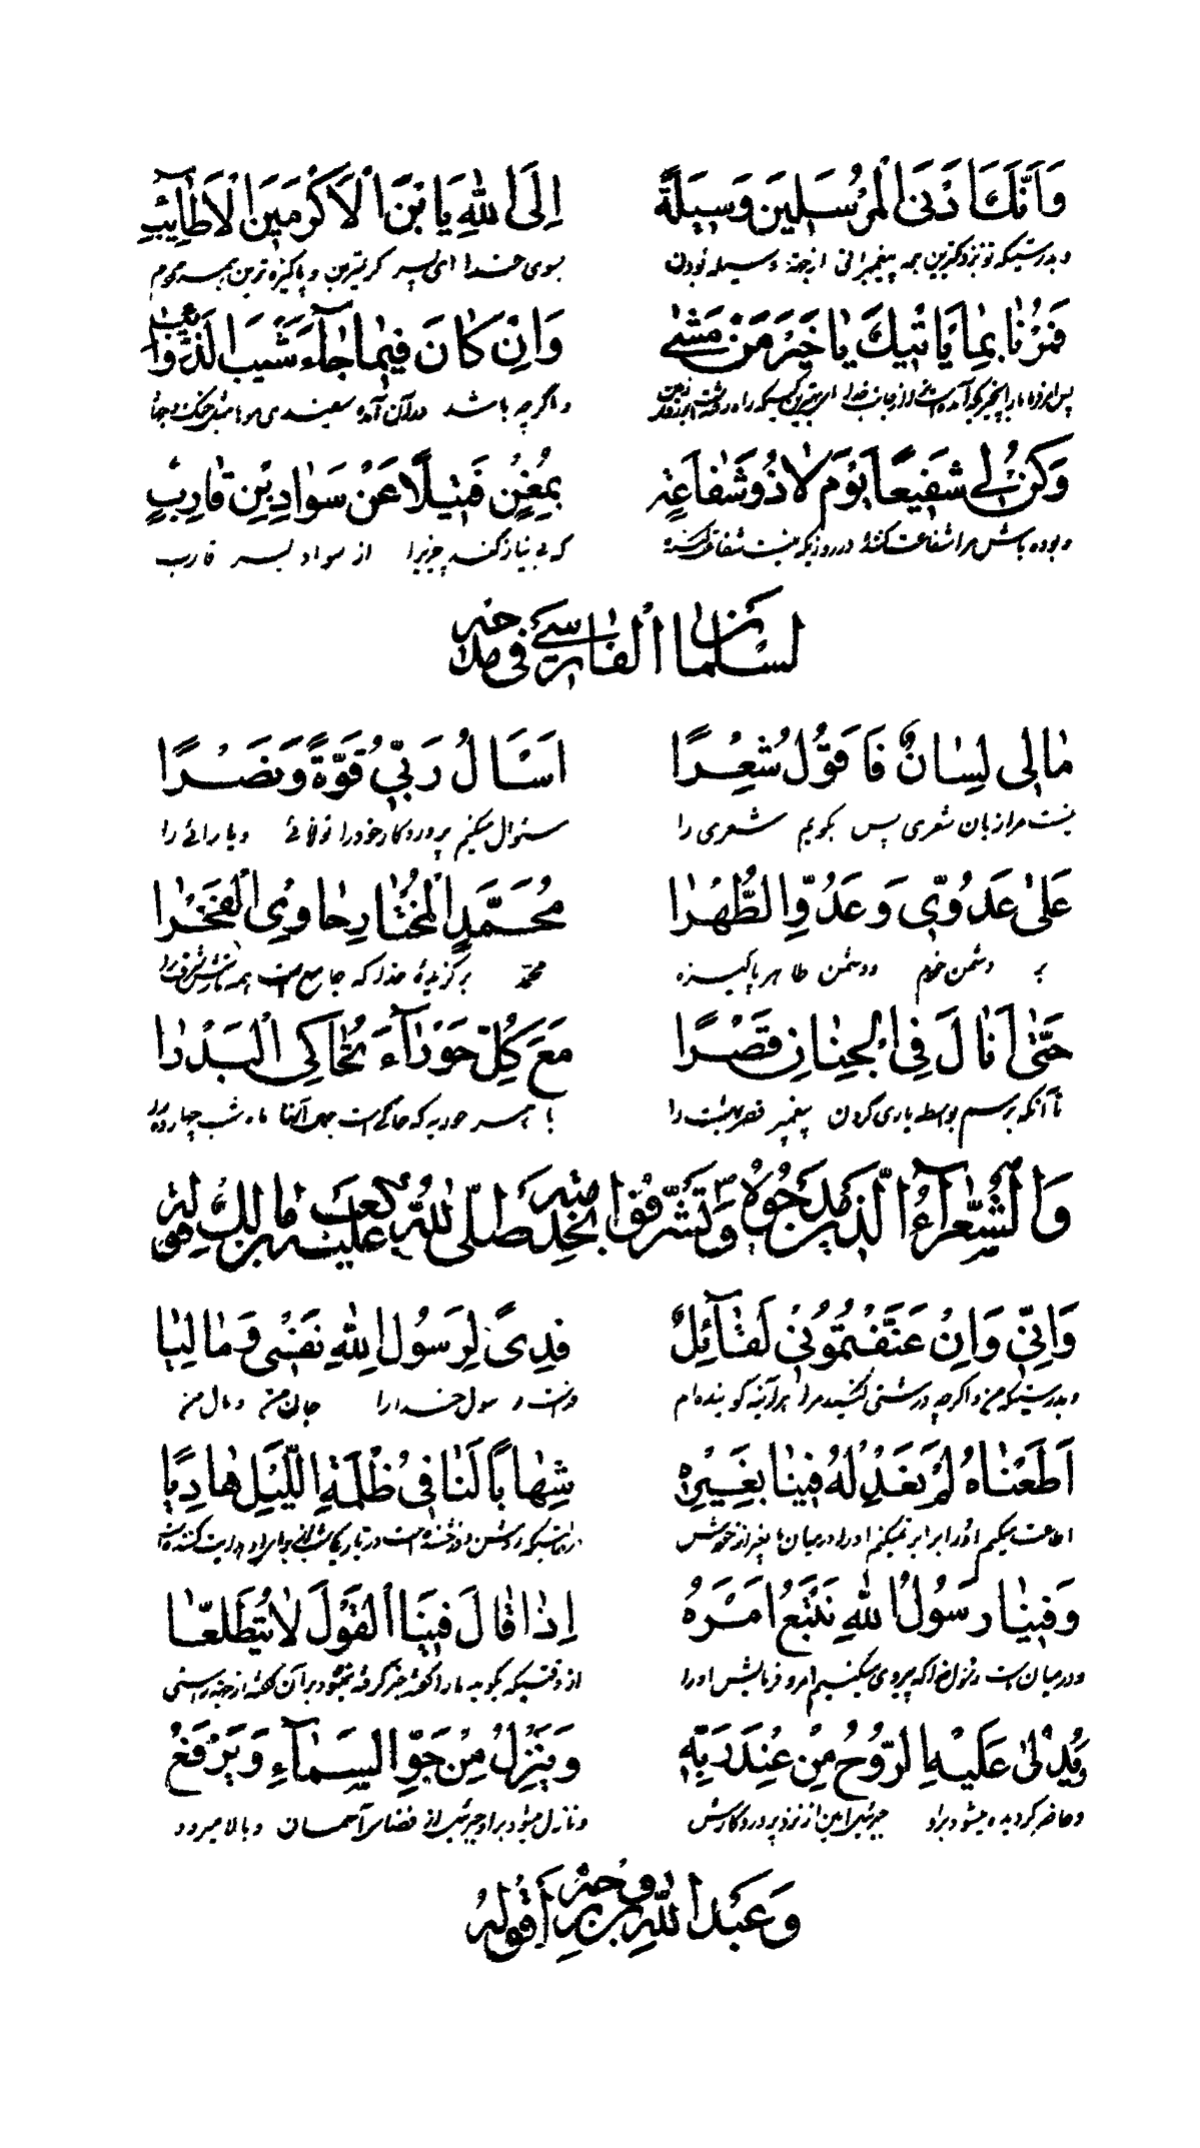 وَاَنَّكَ اَدْنَى الْمُرْسَلِينَ وَسِيلَةً اِلَى اللهِ يَا بْنَ الْاَكْرَمِينَ الْاَطَايِبِ
و بدرستیکه تو نزدیکترین همه پیغمبرانی از جهة وسیله بودن بسوی خدا ای پسر کریمترین و پاکیزه ترین مردم
فَمُرْنَا بِمَا يَاْتِيكَ يَا خَيْرَ مَنْ مَشَى وَاِنْ كَانَ فِيمَا جَاءَ شَيْبَ الذَّوَائِبِ
و اگر چه باشد در آن آمده سفیدی
وَكُنْ لِى شَفِيعًا يَوْمَ لَاذُو شَفَاعَةٍ بِمُغْنٍ فَتِيلًا عَنْ سَوَادِ بْنِ قَارِبٍ
و بوده باش مرا شفاعت کننده در روزیکه نیست شفاعت کننده که بی نیاز کند چیزیرا از سواد پسر قارب
لسلمان الفارسى فى مدحته
مَالِى لِسَانٌ فَاَقُولُ شِعْرًا اَسْاَلُ رَبِّى قُوَّةً وَنَصْرًا
نیست مرا زبان شعری پس بگویم شعری را سئوال میکنم پروردگار خود را توانائی و یارائی را
عَلَى عَدُوِّى وَعَدُوِّ الطُّهْرَا مُحَمَّدِ الْمُخْتَارِ حَاوِىِ الْفَخْرَا
بر دشمن خودم و دشمن طاهر پاکیزه محمد برگزیدهٔ خدا که جامع است
حَتَّى اَنَالَ فِى الْجِنَانِ قَصْرًا مَعَ كُلِّ حَوْرَاءَ تُحَاكِى الْبَدْرَا
تا آنکه برسم بواسطه یاری کردن پیغمبر قصر بهشت را با هر حوریه که حاکی است ماه شب چهارده را
وَالشُّعَرَاءُ الَّذِينَ مَدَحُوهُ وَتَشَرَّفُوا بِخِدْمَتِهِ صَلَّى اللهُ عَلَيْهِ كعب بن مالك قوله
وَاِنِّى وَاِنْ عَنَّفْتُمُونِى لَقَائِلٌ فِدىً لِرَسُولِ اللهِ نَفْسِى وَمَالِيَا
و بدرستیکه من و اگر چه درشتی کنید مرا هر آینه گوینده ام فدای رسول خدا را جان من و مال من
اَطَعْنَاهُ لَمْ نَعْدِلْهُ فِينَا بِغَيْرِهِ شِهَابًا لَنَا فِى ظُلْمَةِ اللَّيْلِ هَادِيًا
اطاعت میکنیم او را برابر نمیکنیم او را در میان ما بغیر از خودش
وَفِينَا رَسُولُ اللهِ نَتْبَعُ اَمْرَهُ اِذَا قَالَ فِينَا الْقَوْلَ لَا نَتَطَلَّعَا
و در میان ماست رسول خدا که پیروی میکنیم امر و فرمایش او را از وقتیکه بگوید
تَدَلَّى عَلَيْهِ الرُّوحُ مِنْ عِنْدِ رَبِّهِ وَيَنْزِلُ مِنْ جَوِّ السَّمَاءِ وَيَرْفَعُ
و حاضر گردیده میشود براو جبرئیل امین از نزد پروردگارش و نازل میشود براو جبرئیل از فضای آسمان و بالا میرود
وَعَبْدُ اللهِ بن رواحة قوله